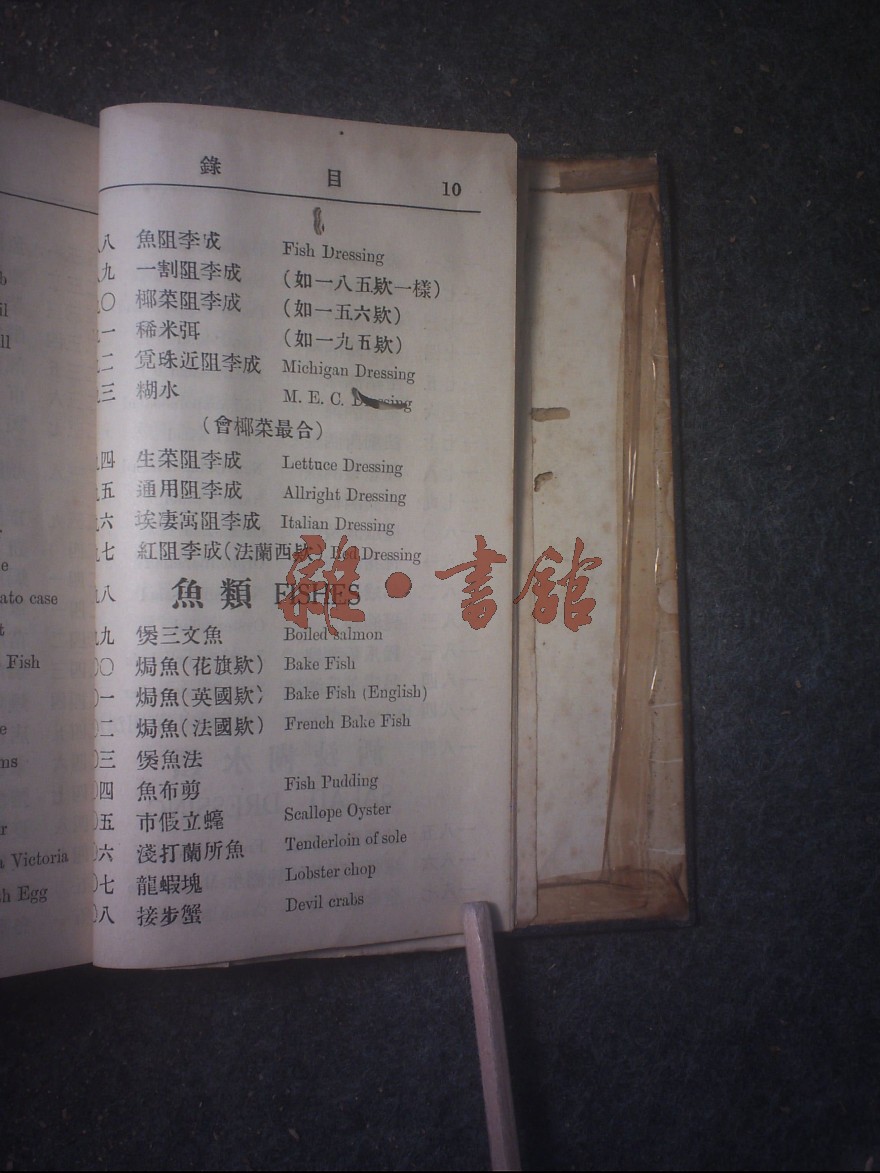 錄 目 10
八 魚阻李成 Fish Dressing
九 一割阻李成 (如一八五欵一樣)
〇 椰菜阻李成 (如一五六欵)
一 稀米弭 (如一九五欵)
二 覓珠近阻李成 Michigan Dressing
三 糊水 M. E. C. Dressing
(會椰菜最合)
四 生菜阻李成 Lettuce Dressing
五 通用阻李成 Allright Dressing
六 埃凄寓阻李成 Italian Dressing
七 紅阻李成(法蘭西欵) Red Dressing
八 魚類 FISHES
九 煲三文魚 Boiled salmon
〇 焗魚(花旗欵) Bake Fish
一 焗魚(英國欵) Bake Fish (English)
二 焗魚(法國欵) French Bake Fish
三 煲魚法
四 魚布剪 Fish Pudding
五 市假立蠔 Scallope Oyster
六 淺打蘭所魚 Tenderloin of sole
七 龍蝦塊 Lobster chop
八 接步蟹 Devil crabs
ato case
Fish
Victoria
Egg
雜·書館